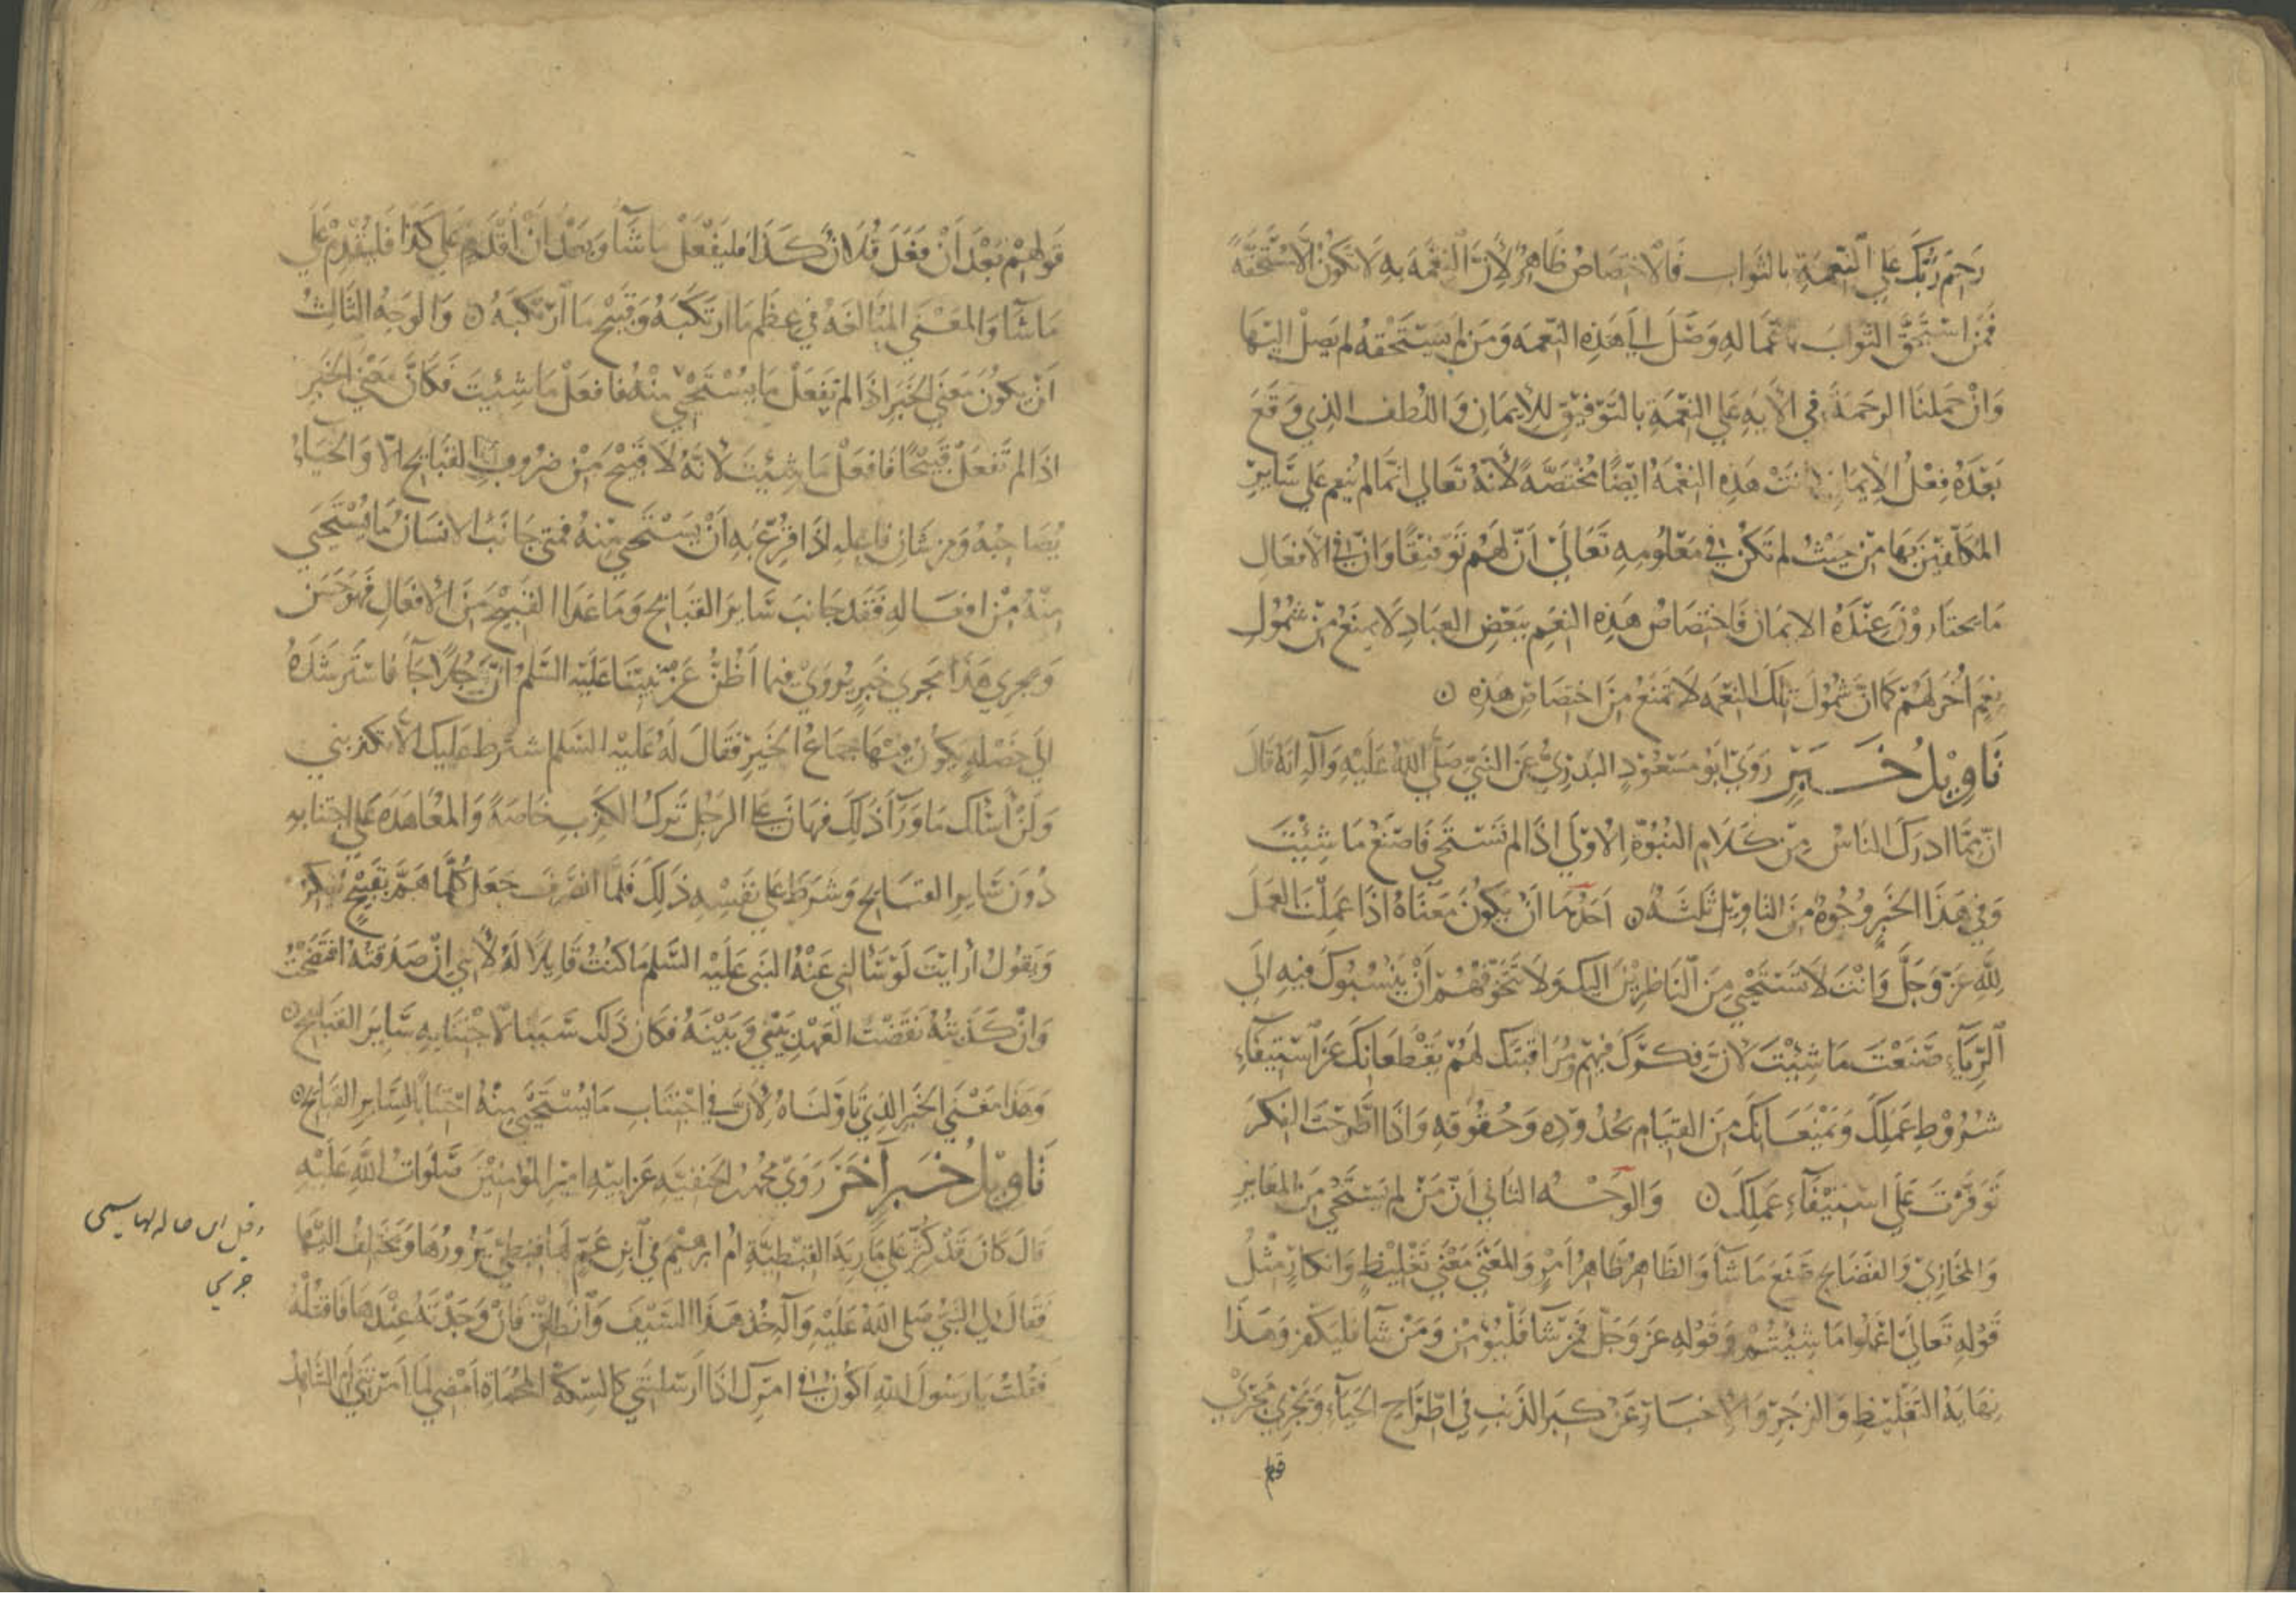 رَحِمَ رَبُّكَ عَلَى النِّعْمَةِ بالثواب فَالاختصَاصُ ظَاهِرٌ لِأنَّ النِّعْمَةَ بِهِ لَا تَكُونُ إلّا مُسْتَحَقَّةً
فَمَن اسْتَحَقَّ الثوابَ باعماله وَصَلَ الى هَذِهِ النِّعمَه وَمَن لم يَسْتَحقَّهُ لم يَصِلْ اليْهَا
وَانْ حَمَلنَا الرحمَةَ في الآيَةِ عَلى النِّعْمَةِ بالتَوْفيقِ لِلإيمَانِ وَاللُّطف الذي وَقَعَ
بَعْدَهُ فِعْلُ الإيمَان كانَتْ هَذِهِ النِّعْمَةُ ايضًا مُختَصَّةً لأنَّهُ تَعَالى انّمَا لم يُنعِم عَلى سَايرِ
المكَلّفِينَ بهَا مِن حَيْثُ لم تَكُنْ في مَعْلُومِهِ تَعَالَى أنّ لهُم تَوفيقًا وَانّ في الأفعَالِ
مَا يختَارُوْنَ عِنْدَهُ الايمَانَ فَاختصَاصُ هَذِهِ النِّعَمِ ببَعْضِ العِبَادِ لَا يمنَعُ مِنْ شُمُولِ
نِعَمٍ أُخَرَ لَهُمْ كَمَا انَّ شُمُولَ تلكَ النِّعَمِ لَا تمنَعُ مِنَ اختصَاصِ هَذِهِ ۝
تَأوِيْلُ خَبَرٍ رَوَى أبُو مَسْعُوْدٍ البَدْرِيُّ عَنِ النَّبيّ صَلَّى اللهُ عَلَيْهِ وَآلِهِ انَهُ قَالَ
انّ مّمَا ادرَكَ النَاسُ مِنْ كَلَامِ النُبُوَّةِ الاوْلَى اذَا لم تَسْتَحْيِ فَاصْنَعْ مَا شِئْتَ
وَفي هَذَا الخَبَرِ وُجُوهٌ مِنَ التاوِيْلِ ثَلثَةٌ ۝ احَدُهَا انْ يَكُونَ مَعنَاهُ اذَا عَمِلتَ العَمَلَ
لِلّهِ عَزّ وَجَلَّ وَانْتَ لَا تَسْتَحْيِي مِنَ النَاظِرِيْنَ اليكَ وَلَا تَتَخَوّفُهُمْ أنْ يَنْسُبُوكَ فِيهِ الَى
الرِّيَاءِ صَنَعْتَ مَا شِئْتَ لانّ فِكرَكَ فِيهِم ومُرَاقَبتَكَ لهُمْ يَقْطَعَانِكَ عَن اسْتِيفَاءِ
شُرُوْطِ عَمَلِكَ وَيَمْنَعَانِكَ مِنَ القِيَامِ بحُدُوْدِه وَحُقُوقِهِ وَاذَا اطّرَحْتَ الفِكْرَ
تَوَفَّرْتَ عَلَى اسْتِيْفَاءِ عَمَلِكَ ۝ وَالوَجْهُ الثاني أنّ مَنْ لم يَسْتَحْيِ مِنَ المعَايرِ
وَالمخَازِيْ وَالفَضَايحِ صَنَعَ مَا شَآءَ وَالظاهرُ ظَاهِرُ أَمْرٍ وَالمعْنَى مَعْنَى تَغْلِيْظٍ وَانكارٍ مِثْلُ
قَوْلِهِ تَعَالَى اعْمَلُوا مَا شِئْتُمْ وَقَوْلِهِ عَزَّ وَجَلَّ فَمَنْ شَآءَ فَلْيُؤْمِنْ وَمَنْ شَآءَ فَليَكْفُرْ وَهَذَا
نِهَايَةُ التَغْلِيْظِ وَالزجرِ وَالإخبَارِ عَنْ كِبَر الذَّنبِ في اطِّرَاحِ الحَيَآءِ وَيَجْرِيْ مَجْرَى
قولهم
قَولِهِمْ بَعْدَ أَنْ فَعَلَ فُلَانٌ كَذَا فليَفْعَلْ مَا شَآءَ وَبَعْدَ أنْ أَقْدَمَ عَلى كَذَا فَليُقْدِمْ عَلَى
مَا شَآءَ وَالمعْنَى المُبَالَغَةُ في عِظَمِ مَا ارْتَكَبَهُ وَقُبْحِ مَا ارْتَكَبَهُ ۝ وَالوَجْهُ الثَالِثُ
انْ يَكُونَ مَعنَى الخَبَرِ اذَا لم تَفعَلْ مَا يُسْتَحْيَى مِنْهُ فَافعَلْ مَا شِئْتَ فَكَانّ مَعْنَى الخَبَرِ
اذَا لم تَفعَلْ قَبِيْحًا فَافعَلْ مَا شِئتَ لأنّهُ لَا قَبِيْحَ مِنْ ضُرُوبِ القَبَايحِ الاّ وَالحَيَاءُ
يُصَاحِبُهُ وَمِن شَانِ فَاعِلِهِ اذَا قُرِعَ بِهِ أنْ يَسْتَحْيِيَ مِنْهُ فَمتى جَانَبَ الانسَانُ مَا يُسْتَحْيَى
مِنْهُ مِنْ افعَالِهِ فَقَد جَانَبَ سَايرَ القَبَايحِ وَمَا عَدَا القَبِيْحَ مِنَ الأفعَالِ فَهُوَ حَسَن
وَيجرِي هَذَا مَجْرَى خَبَرٍ يُرْوَى فيما أَظُنُّ عَنْ نَبِيّنَا عَلَيْهِ السَّلم انّ رَجُلًا جَآءَهُ فَاسْتَرشَدَهُ
الى خَصْلةٍ يَكُونُ فِيْهَا جِمَاعُ الخَيرِ فَقَالَ لَهُ عَلَيْهِ السَّلم اشترط عليك ألّا تكذبني
وَلَنْ أسْئَلَكَ مَا وَرَآءَ ذَلِكَ فَهَانَ عَلَى الرجُل تَركُ الكَذِبِ خَاصّةً وَالمعَاهَدَةُ عَلى اجتنابه
دُوْنَ سَايرِ القَبَايحِ وَشَرَطَ عَلى نَفْسِهِ ذَلِكَ فَلَمَّا انصَرَفَ جَعَلَ كُلَّمَا هَمَّ بقَبِيْحٍ يُفَكّرُ
وَيَقُولُ أرَأيتَ لَوْ سَالني عَنْهُ النبيّ عَلَيْهِ السَّلم مَا كنتُ قَايلًا لَهُ لأني إنْ صَدَقتُهُ افتَضَحْتُ
وَانْ كَذَبتُهُ نَقَضْتُ العَهْدَ بَيْنِي وَبَيْنَهُ فكَانَ ذَلِكَ سَبَبًا لاجْتِنَابِهِ سَايرَ القَبَايحِ ۝
وَهَذَا مَعْنَى الخَبَرِ الذِي تَاوَلنَاهُ لِأنّ في اجْتِنَابِ مَا يُسْتَحْيَى مِنْهُ اجْتنَابًا لِسَايرِ القَبَايحِ ۝
تَأوِيْلُ خَبَرٍ آخَرَ رَوَى محمد بن الحنفِيَّهِ عَن ابيْهِ امِيرِ المؤمِنِيْنَ صَلَوَاتُ اللهِ عَلَيْهِ
قَالَ كَانَ قَدْ كُثِّرَ عَلى مَارِيَةَ القِبطِيَّةِ أمّ ابرهيم في ابنِ عَمٍّ لهَا قِبْطِيّ يَزُورُهَا وَيَختَلِفُ اليْهَا
فَقَالَ لي النَبيُّ صَلى اللهُ عَلَيْهِ وَآلِهِ خُذ هَذَا السَيْفَ وَانطَلِق فَانْ وَجَدْتَهُ عِنْدَهَا فَاقتُلْهُ
فَقُلتُ يَا رَسُولَ اللهِ أكُونُ في امرِكَ اذَا ارْسَلتَني كَالسّكّةِ المحْمَاةِ أمْضِي لمَا امَرتَنِي أم الشَّاهدُ